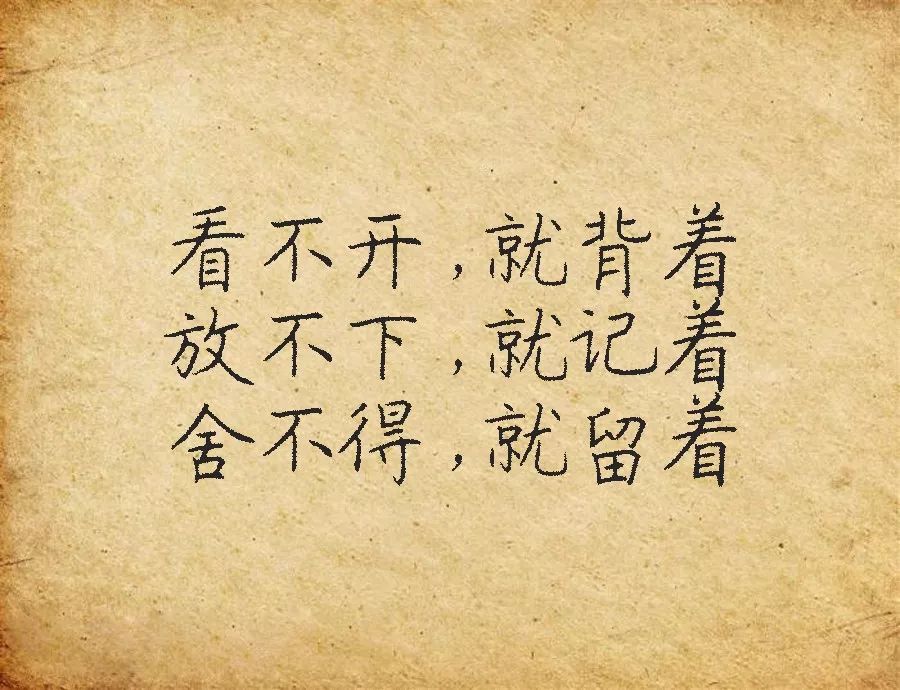 看不开，就背着
放不下，就记着
舍不得，就留着